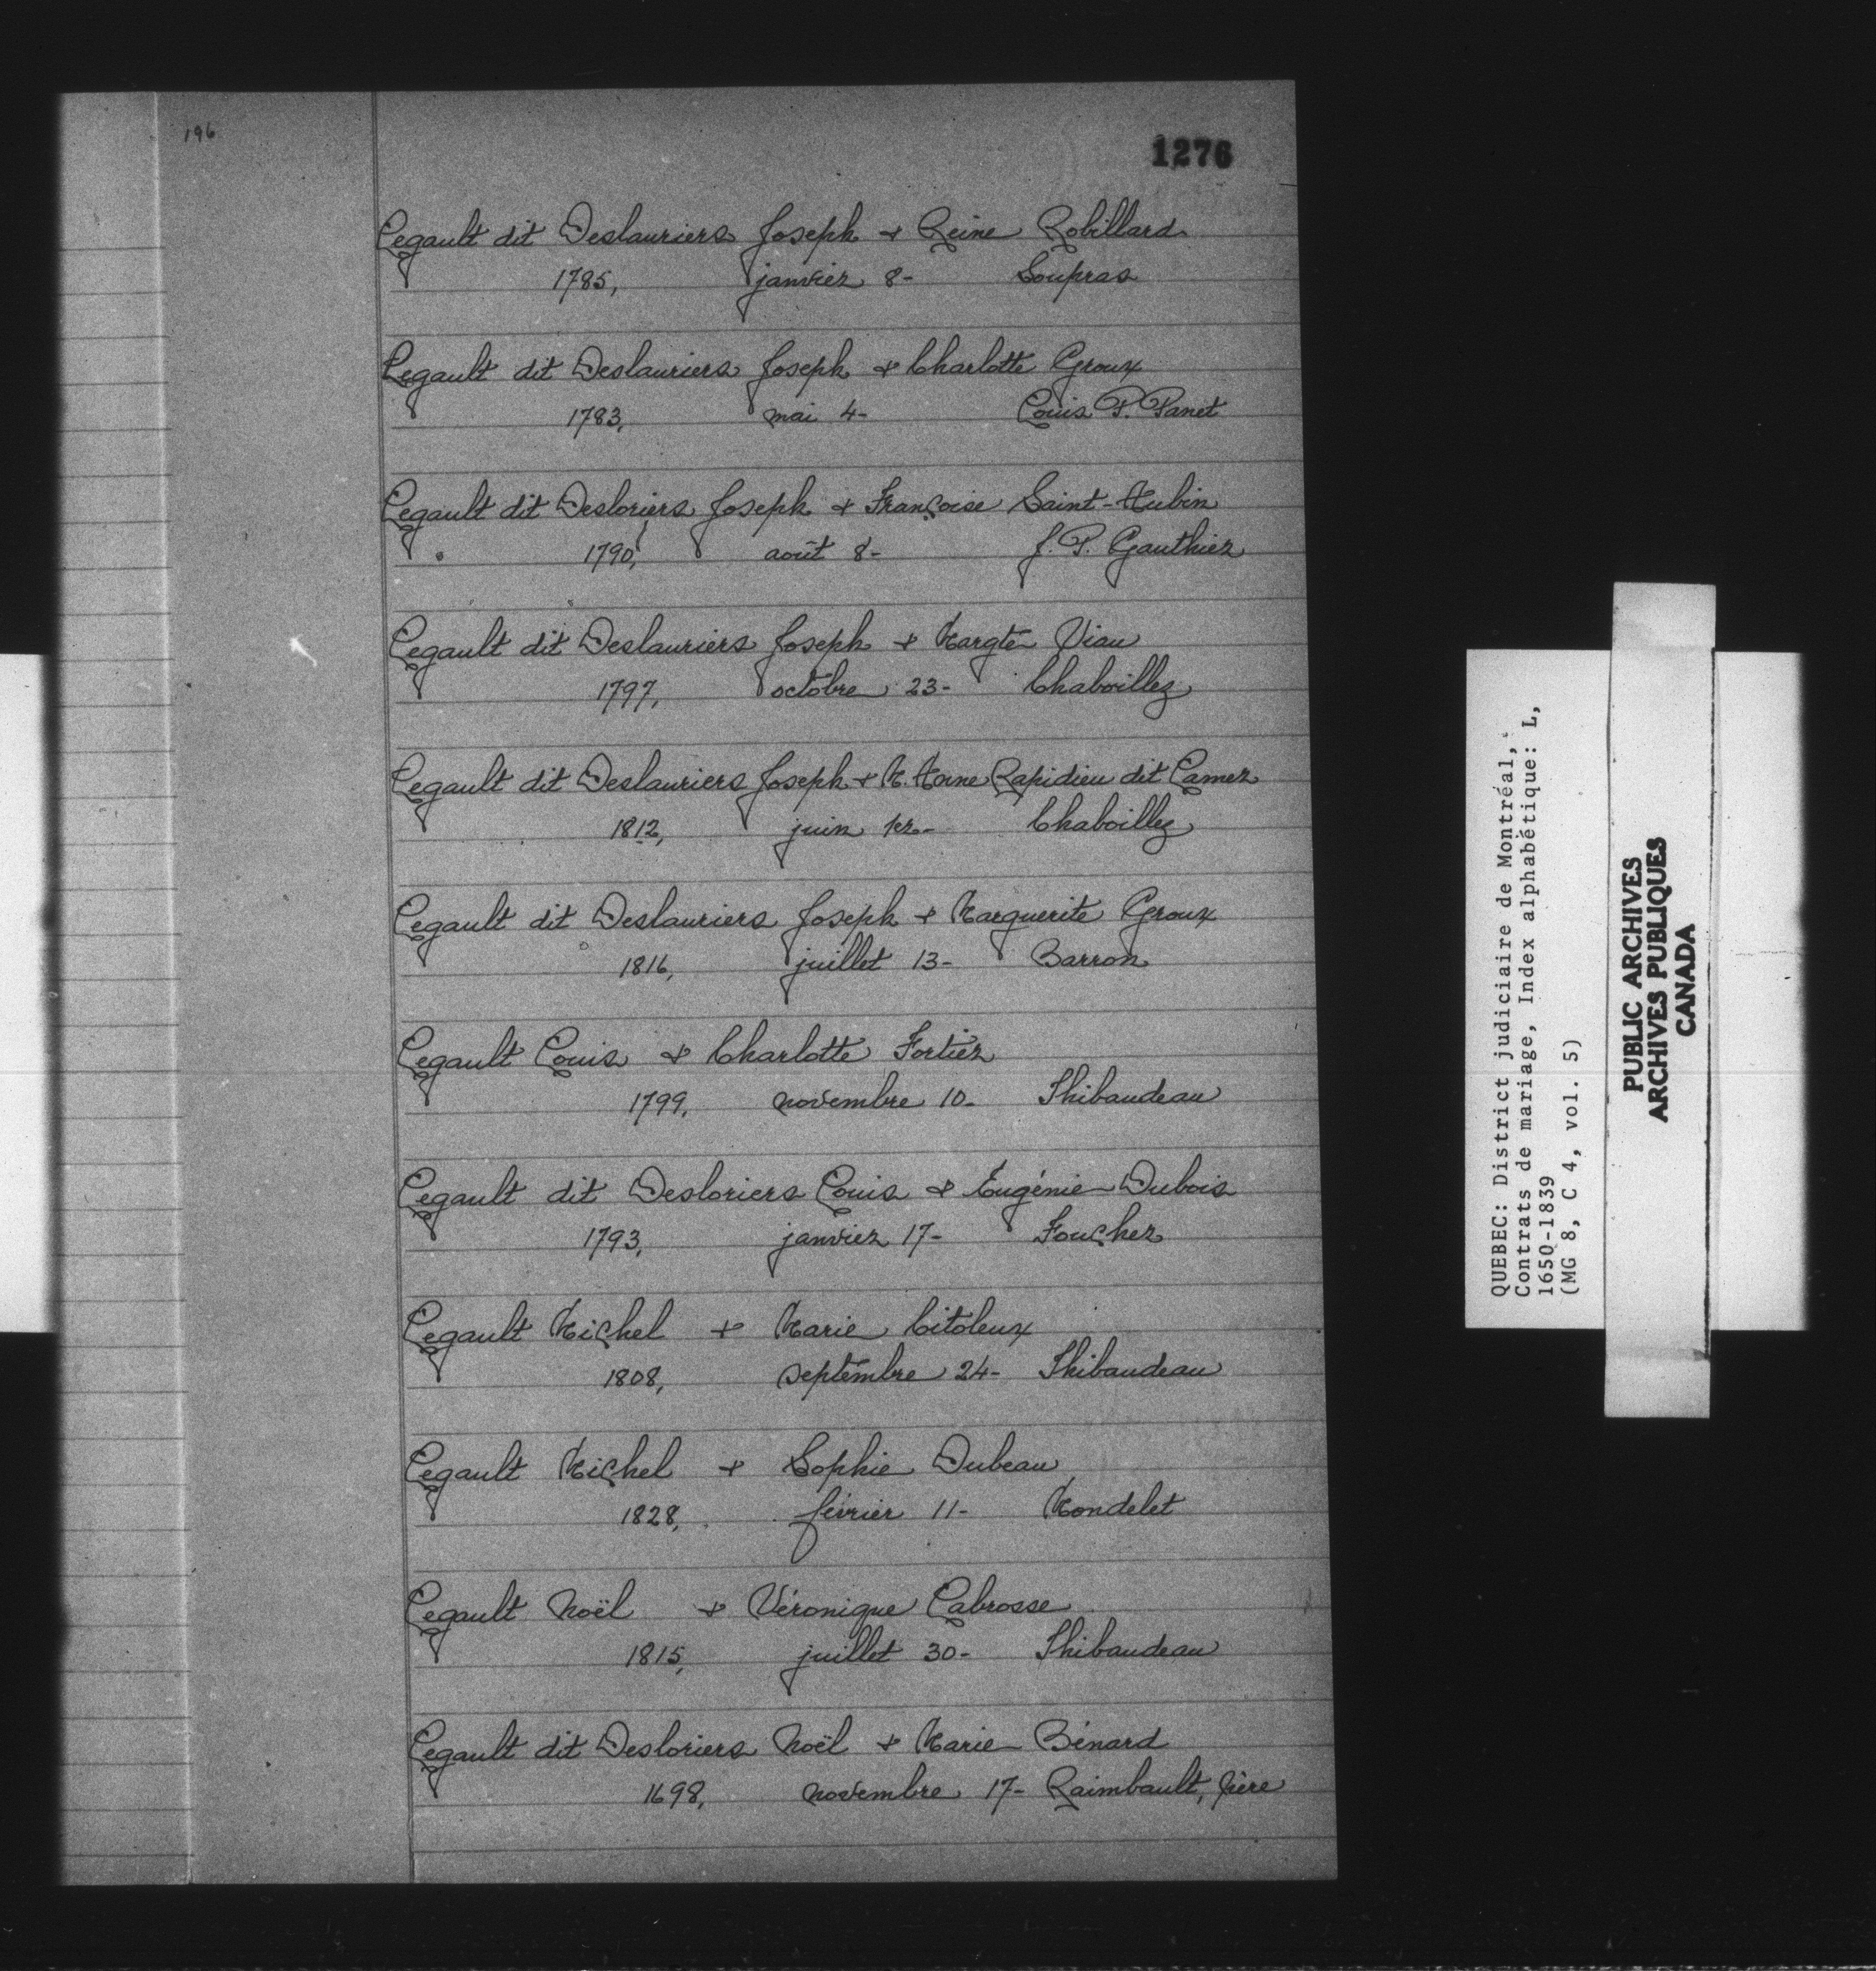 196
1276
Legault dit Deslauriers Joseph + Reine Robillard
1785, janvier 8- Soupras
Legault dit Deslauriers Joseph + Charlotte Groux
1783, mai 4- Louis P. Panet
Legault dit Desloriers Joseph + Françoise Saint-Aubin
1790, août 8- J. P. Gauthier
Legault dit Deslauriers Joseph + Margte Viau
1797, octobre 23- Chaboillez
Legault dit Deslauriers Joseph + M. Anne Rapidieu dit Lamer
1812, juin 1er- Chaboillez
Legault dit Deslauriers Joseph + Marguerite Groux
1816, juillet 13- Barron
Legault Louis + Charlotte Fortier
1799, novembre 10- Thibaudeau
Legault dit Desloriers Louis + Eugénie Dubois
1793, janvier 17- Foucher
Legault Michel + Marie Citoleux
1808, septembre 24- Thibaudeau
Legault Michel + Sophie Dubeau
1828, février 11- Mondelet
Legault Noël + Véronique Labrosse
1815, juillet 30- Thibaudeau
Legault dit Desloriers Noël + Marie Bénard
1698, novembre 17- Raimbault, père
QUEBEC: District judiciaire de Montréal,
Contrats de mariage, Index alphabétique: L,
1650-1839
(MG 8, C 4, vol. 5)
PUBLIC ARCHIVES
ARCHIVES PUBLIQUES
CANADA